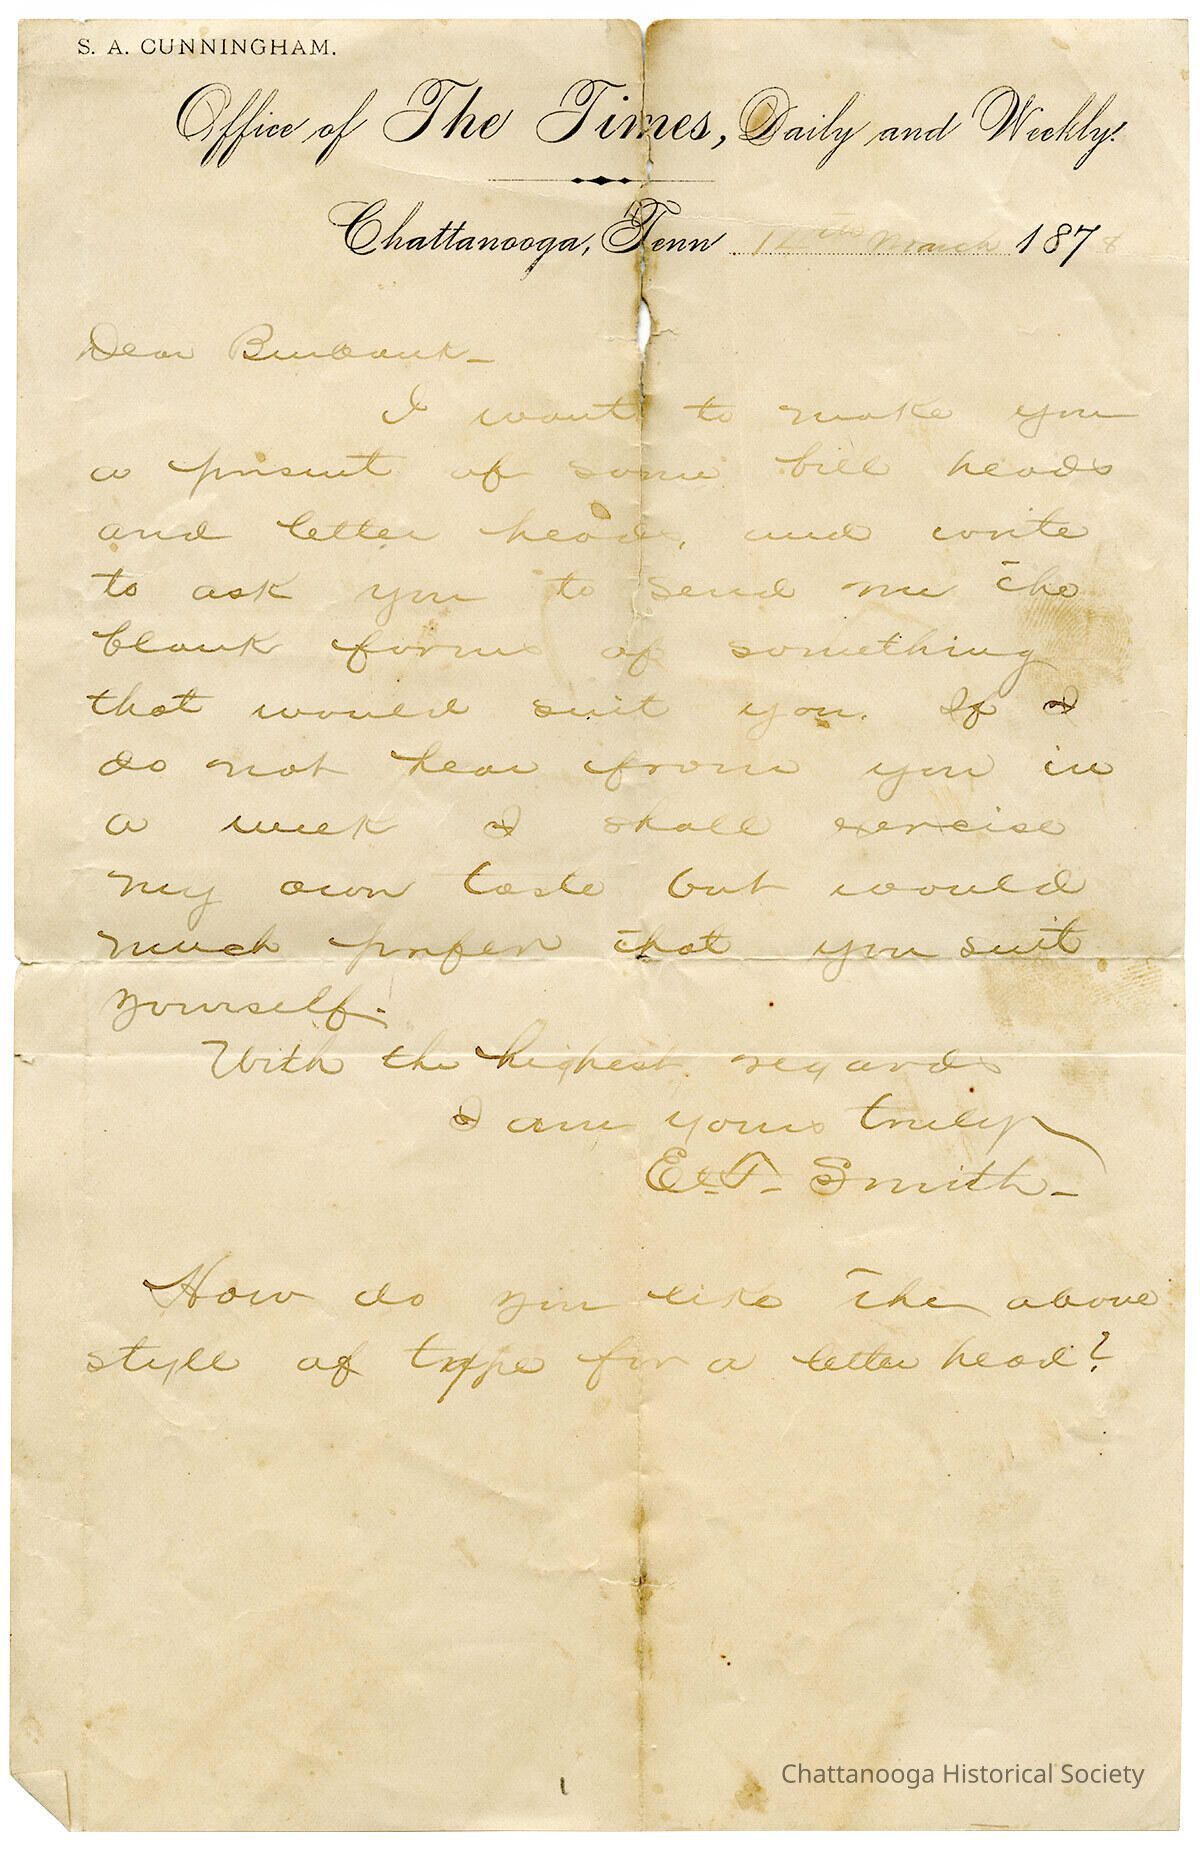 S. A. CUNNINGHAM.
Office of The Times, Daily and Weekly.
Chattanooga, Tenn 12th March 1878
Dear Burbank–
I want to make you
a present of some bill heads
and letter heads, and write
to ask you to send me the
blank forms of something
that would suit you. If I
do not hear from you in
a week I shall exercise
my own taste but would
much prefer that you suit
yourself.
With the highest regards
I am yours truly
E. T. Smith–
How do you like the above
style of type for a letter head?
Chattanooga Historical Society